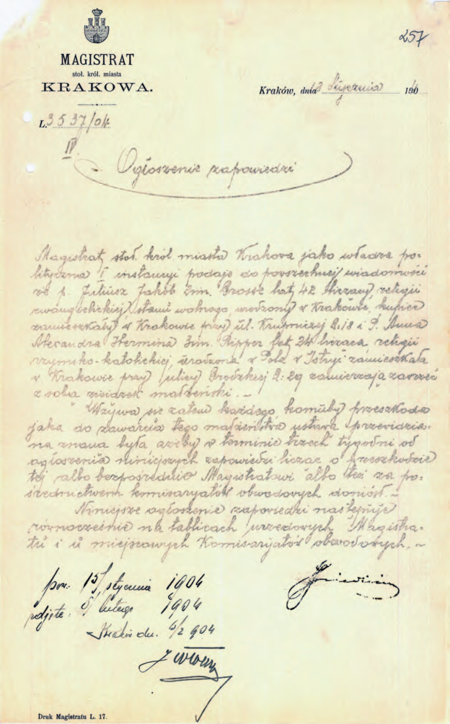 257
MAGISTRAT
stoł. król. miasta
KRAKOWA.
Kraków, dnia 13 Stycznia 190
L. 3537/04
IV
Ogłoszenie zapowiedzi
Magistrat stoł. król miasta Krakowa jako władza po-
lityczna I instancyi podaje do powszechnej wiadomości
że p. Juliusz Jakób 2im. Grosse lat 42 liczący, religii
ewangelickiej, stanu wolnego urodzony w Krakowie, kupiec
zamieszkały w Krakowie przy ul. Krupniczej L: 18 i P. Anna
Alexandra Hermina 3im. Ripper lat 24 licząca, religii
rzymsko-katolickiej, urodzona w Pola w Istryi zamieszkała
w Krakowie przy ulicy Grodzkiej L: 29 zamierzają zawrzeć
z sobą związek małżeński. -
Wzywa się zatem każdego, komuby przeszkoda
jaka do zawarcia tego małżeństwa ustawą przewidzia-
na znana była ażeby w terminie trzech tygodni od
ogłoszenia niniejszych zapowiedzi licząc o przeszkodzie
tej albo bezpośrednio Magistratowi albo też za po-
średnictwem komisaryatów obwodowych doniósł. -
Niniejsze ogłoszenie zapowiedzi następuje
równocześnie na tablicach urzędowych Magistra-
tu i u miejscowych Komisaryatów obwodowych. -
15/ stycznia 1904
zdjęto 5/ lutego 1904
Kraków dn. 6/2 904
Druk Magistratu L. 17.